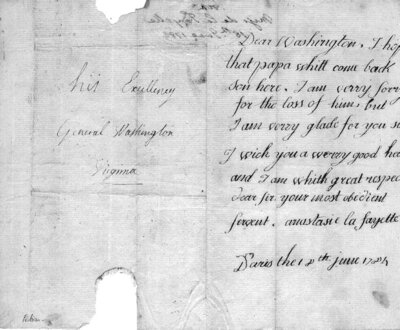 his Exellency
General Washington
Virginia
Dear Washington. I hop
that papa whill come back
son here. I am verry sorr
for the loss of him, but
I am verry glade for you s
I wich you a werry good he
and I am whith great respec
dear sir, your most obedient
servent. anastasie la fayette
Paris the 18th june 1784